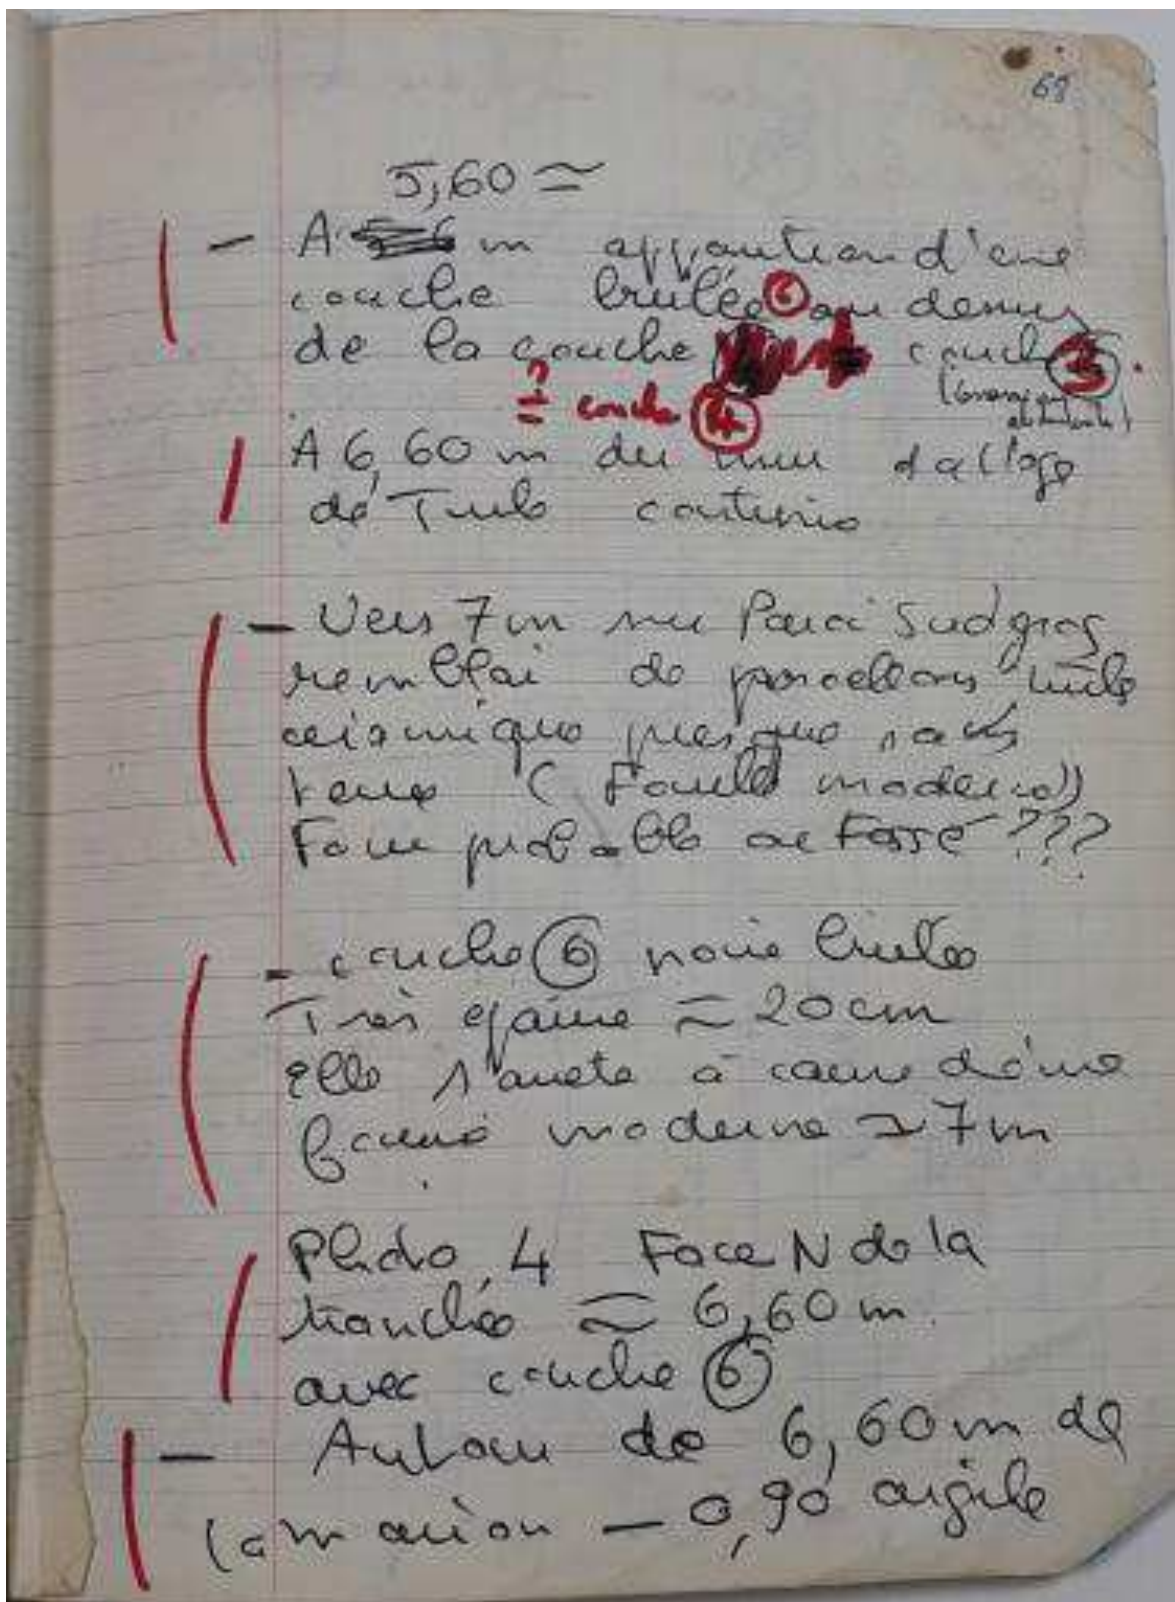 68
5,60 ≃
- A m apparition d'une
couche brulée ⑥ au dessus
de la couche couche ③
= ? couche ④
A 6,60 m du mur dallage
de Tuile continue
- Vers 7 m sur Paroi Sud gros
remblai de morceaux tuile
céramique presque sans
terre ( Fouille moderne))
Fosse probable ou Fossé ???
- couche ⑥ noire brulée
Très épaisse ≃ 20 cm
elle s'arrete à cause d'une
fosse moderne ≃ 7 m
Photo 4 Face N de la
tranchée ≃ 6,60 m.
avec couche ⑥
- Autour de 6,60 m de
- 0,90 argile